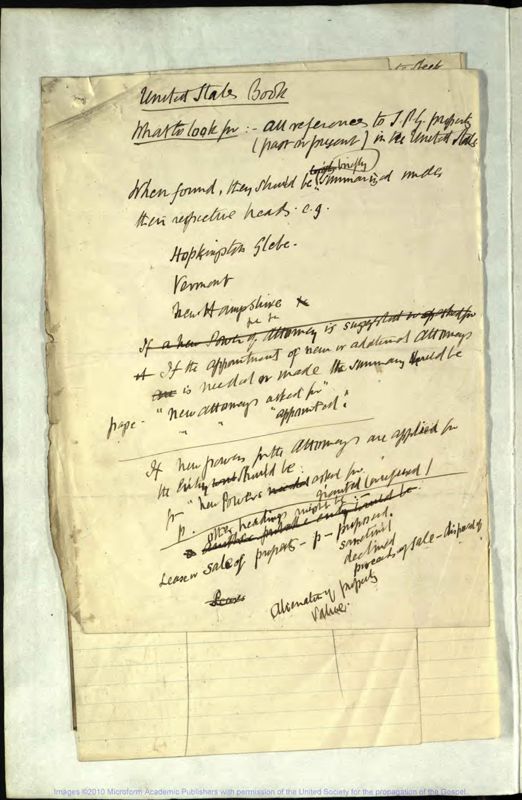 to the
United States Book
What to look for :- all references to S.P.G. property
(past or present) in the United States
When found, they should be briefly summarised under
their respective heads. e.g.
Hopkington Glebe.
Vermont
New Hampshire &c &c
If a new Power of Attorney is suggested or applied for
If the appointment of new or additional Attorneys
is needed or made the summary should be
page - "new attorneys asked for"
" " "appointed".
If new powers for the Attorneys are applied for
the entry should be
p - "new Powers needed asked for
p. granted (or refused)
other headings might be :-
Another probable entry would be
Lease or Sale of property - p - proposed.
sanctioned
declined
proceeds of sale - disposal of
Leases
Alienation of property
Value.
Images ©2010 Microform Academic Publishers with permission of the United Society for the propagation of the Gospel.